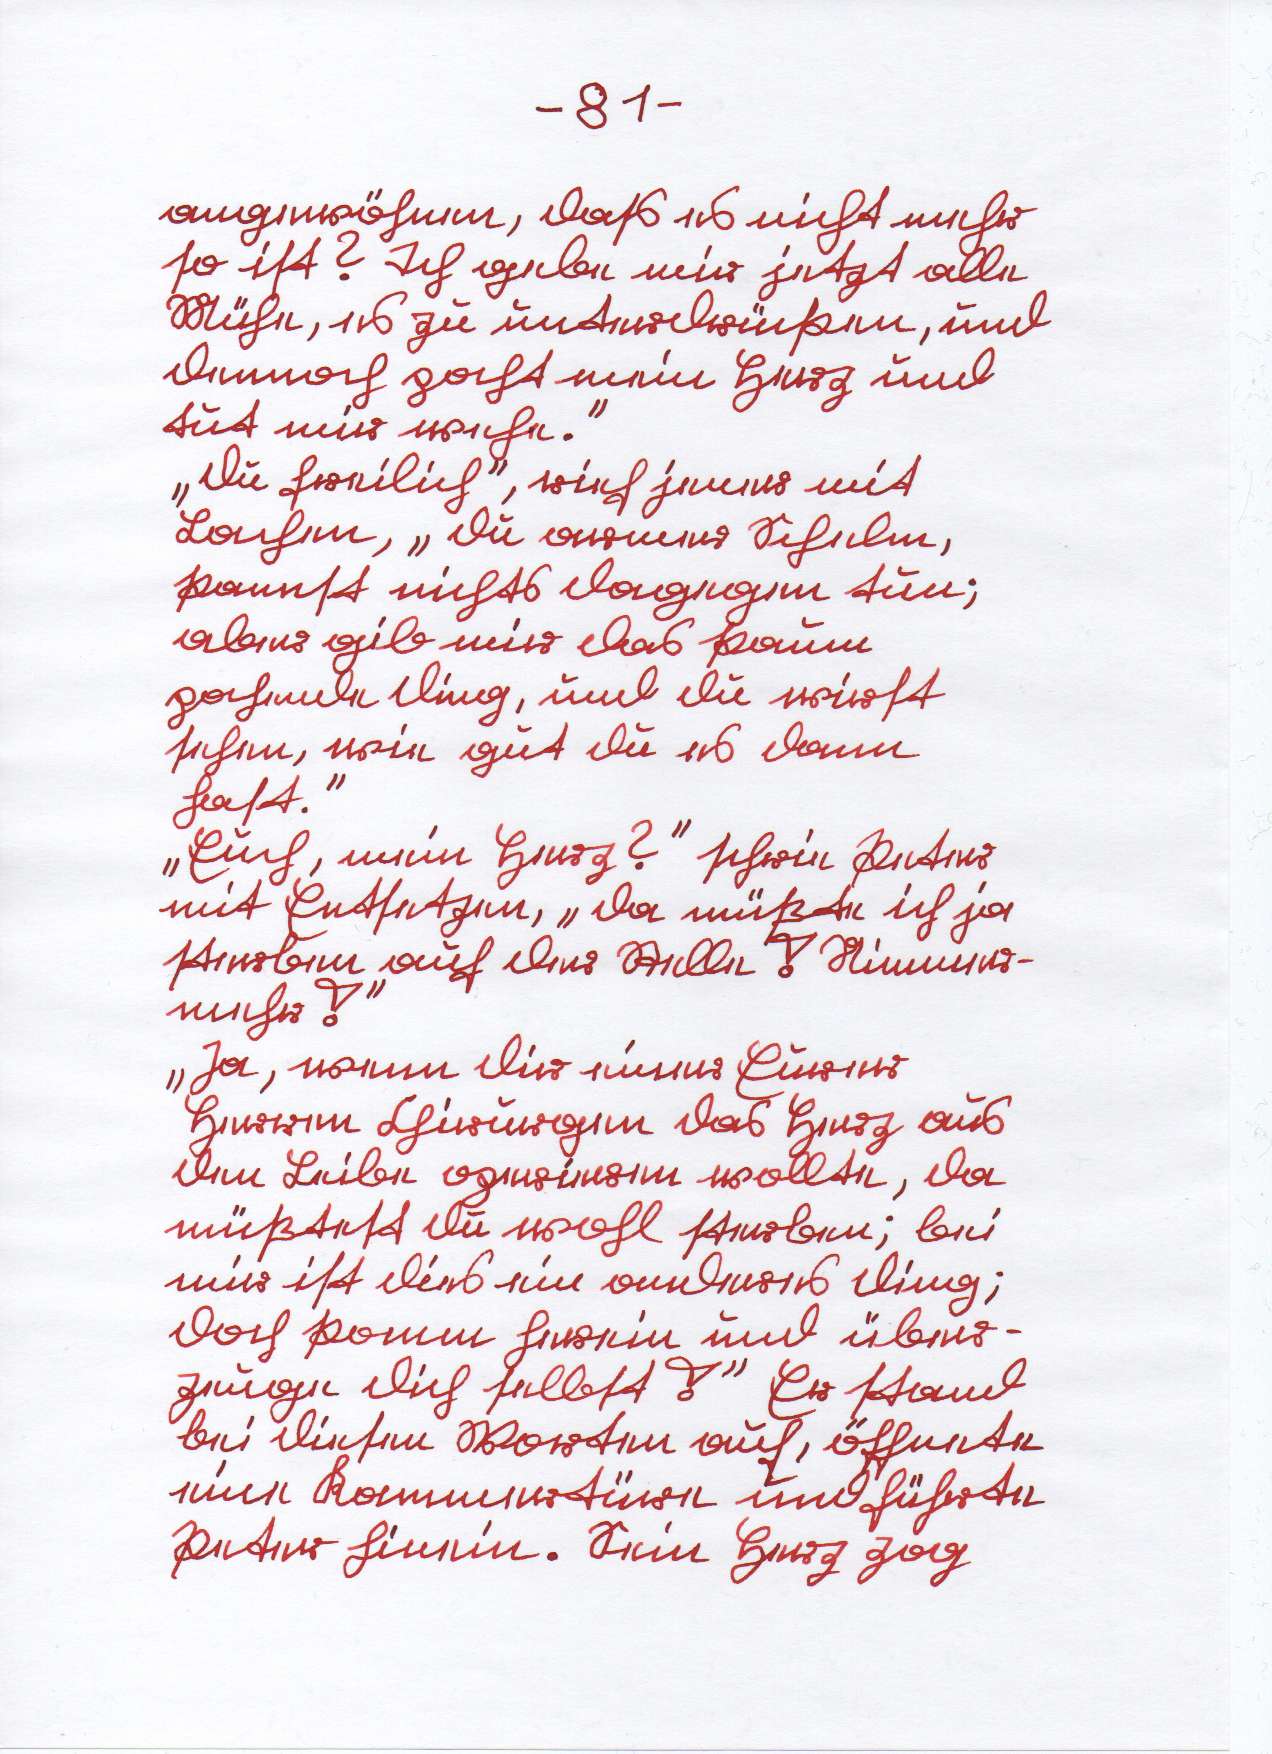 - 81 -
angewöhnen, daß es nicht mehr
so ist? Ich gebe mir jetzt alle
Mühe, es zu unterdrücken, und
dennoch pocht mein Herz und
tut mir wehe."
„Du freilich", rief jener mit
Lachen, „du armer Schelm,
kannst nichts dagegen tun;
aber gib mir das kaum
pochende Ding, und du wirst
sehen, wie gut du es dann
hast."
„Euch, mein Herz?" schrie Peter
mit Entsetzen, „da müßte ich ja
sterben auf der Stelle! Nimmer-
mehr!"
„Ja, wenn dir einer Eurer
Herren Chirurgen das Herz aus
dem Leibe operieren wollte, da
müßtest du wohl sterben; bei
mir ist dies ein anderes Ding;
doch komm herein und über-
zeuge dich selbst!" Er stand
bei diesen Worten auf, öffnete
eine Kammertüre und führte
Peter hinein. Sein Herz zog